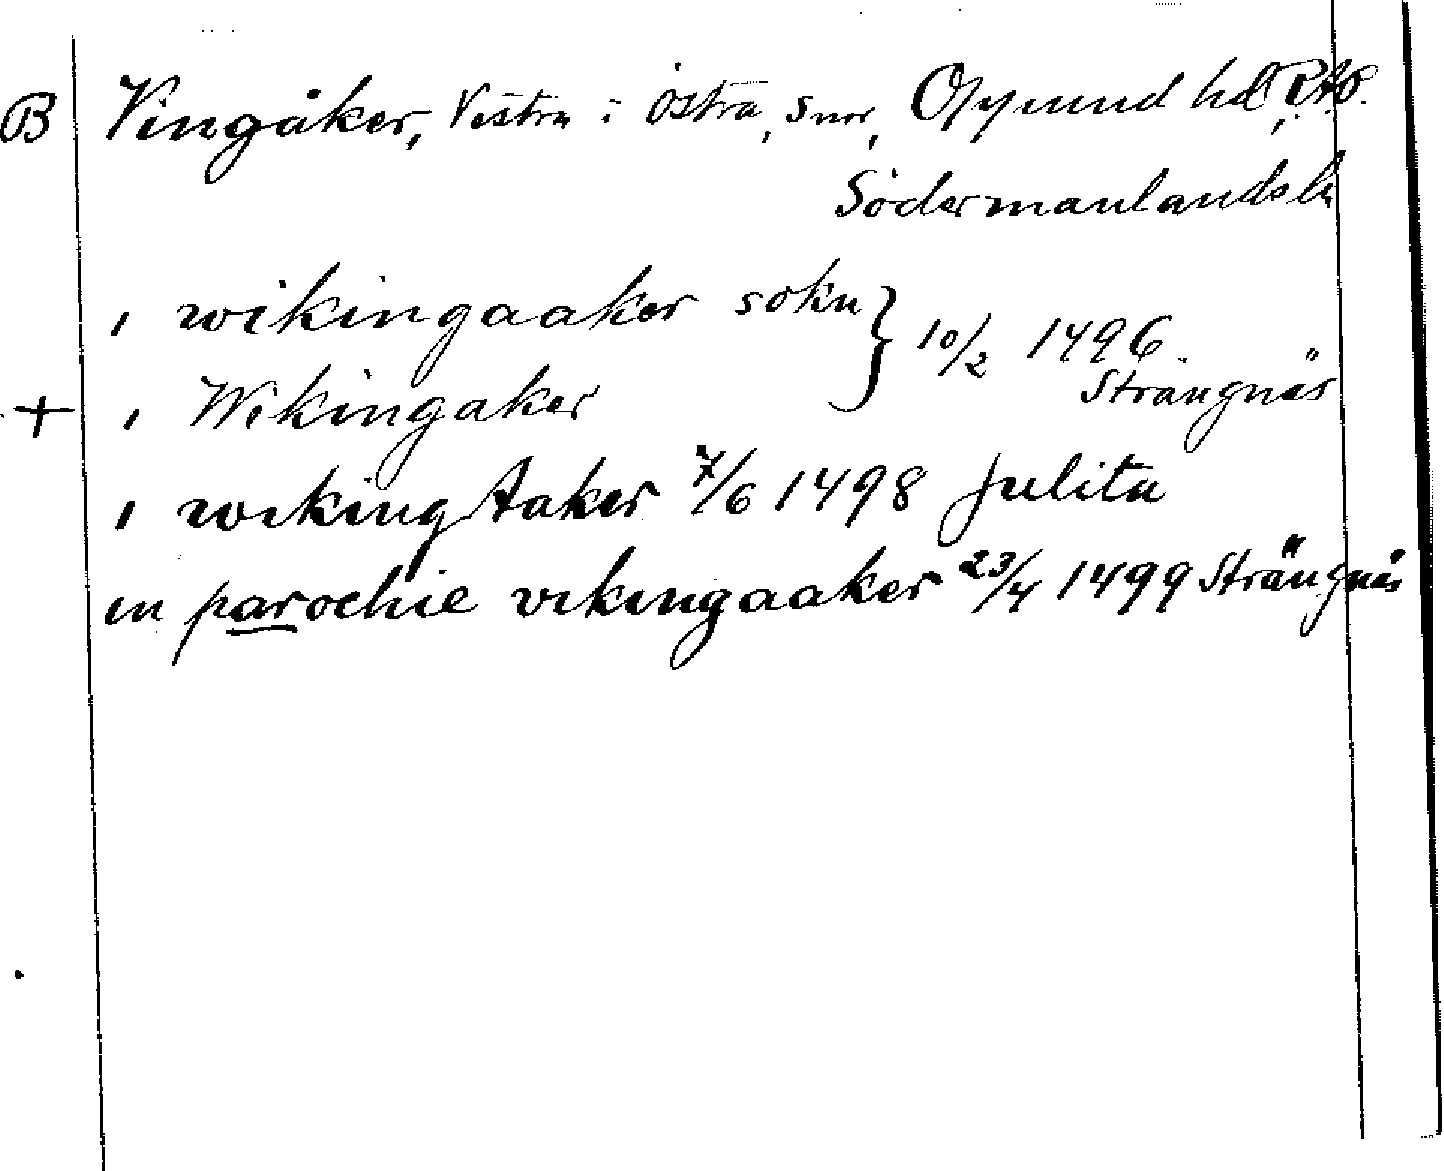 B Vingåker, Vestra i Östra, snr, Oppund hd, RAP.
Södermanlands ln
i wikingaaker sokn } 10/2 1496
+ i Wikingaker Strängnäs
i wiking Aaker 7/6 1498 Julita
in parochie vikingaaker 23/4 1499 Strängnäs